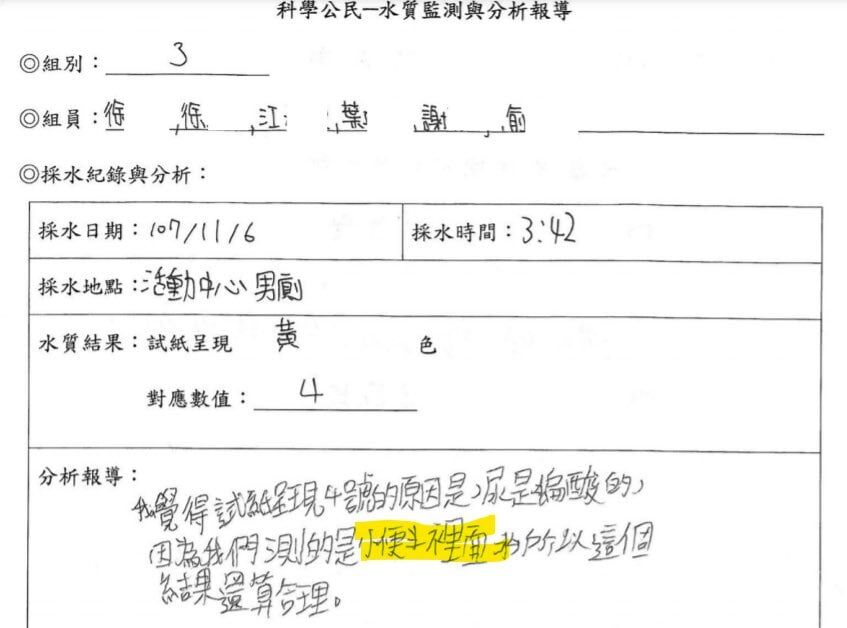 科學公民—水質監測與分析報導
◎組別：3
◎組員：徐,徐,江,葉,謝,俞
◎採水紀錄與分析：
採水日期：107/11/6 採水時間：3:42
採水地點：活動中心男廁
水質結果：試紙呈現 黃 色
對應數值：4
分析報導：
我覺得試紙呈現4號的原因是，尿是偏酸的，
因為我們測的是小便斗裡面 所以這個
結果還算合理。